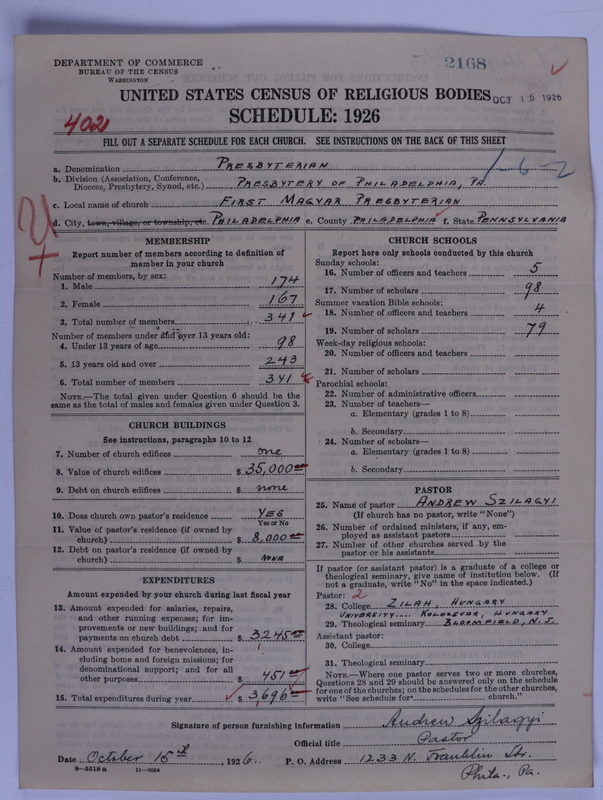 DEPARTMENT OF COMMERCE
BUREAU OF THE CENSUS
WASHINGTON
2168
UNITED STATES CENSUS OF RELIGIOUS BODIES
OCT 16 1926
SCHEDULE: 1926
402
FILL OUT A SEPARATE SCHEDULE FOR EACH CHURCH. SEE INSTRUCTIONS ON THE BACK OF THIS SHEET
a. Denomination PRESBYTERIAN
1-6-2
b. Division (Association, Conference, Diocese, Presbytery, Synod, etc.) PRESBYTERY OF PHILADELPHIA, PA.
c. Local name of church FIRST MAGYAR PRESBYTERIAN
d. City, town, village, or township, etc. PHILADELPHIA e. County PHILADELPHIA f. State PENNSYLVANIA
MEMBERSHIP
Report number of members according to definition of
member in your church
Number of members, by sex:
1. Male 174
2. Female 167
3. Total number of members 341
Number of members under and over 13 years old:
4. Under 13 years of age 98
5. 13 years old and over 243
6. Total number of members 341
NOTE.—The total given under Question 6 should be
same as the total of males and females given under Question 3.
CHURCH BUILDINGS
See instructions, paragraphs 10 to 12
7. Number of church edifices one
8. Value of church edifices $ 35,000.00
9. Debt on church edifices $ none
10. Does church own pastor's residence YES
Yes or No
11. Value of pastor's residence (if owned by
church) $ 8,000.00
12. Debt on pastor's residence (if owned by
church) $ NONE
EXPENDITURES
Amount expended by your church during last fiscal year
13. Amount expended for salaries, repairs,
and other running expenses; for im-
provements or new buildings; and for
payments on church debt $ 3245.00
14. Amount expended for benevolences, in-
cluding home and foreign missions; for
denominational support; and for all
other purposes $ 451.00
15. Total expenditures during year $ 3,696.00
CHURCH SCHOOLS
Report here only schools conducted by this church
Sunday schools:
16. Number of officers and teachers 5
17. Number of scholars 98
Summer vacation Bible schools:
18. Number of officers and teachers 4
19. Number of scholars 79
Week-day religious schools:
20. Number of officers and teachers
21. Number of scholars
Parochial schools:
22. Number of administrative officers
23. Number of teachers—
a. Elementary (grades 1 to 8)
b. Secondary
24. Number of scholars—
a. Elementary (grades 1 to 8)
b. Secondary
PASTOR
25. Name of pastor ANDREW SZILAGYI
(If church has no pastor, write "None")
26. Number of ordained ministers, if any, em-
ployed as assistant pastors
27. Number of other churches served by the
pastor or his assistants
If pastor (or assistant pastor) is a graduate of a college or
theological seminary, give name of institution below. (If
not a graduate, write "No" in the space indicated.)
Pastor: 2
28. College ZILAH, HUNGARY
UNIVERSITY KOLOZSVAR, HUNGARY
29. Theological seminary BLOOMFIELD, N.J.
Assistant pastor:
30. College
31. Theological seminary
NOTE.—Where one pastor serves two or more churches,
Questions 28 and 29 should be answered only on the schedule
for one of the churches; on the schedules for the other churches,
write "See schedule for church."
Signature of person furnishing information Andrew Szilagyi
Official title Pastor
Date October 15th, 1926. P. O. Address 1233 N. Franklin Str.
8—5518a 11—9554
Phila., Pa.